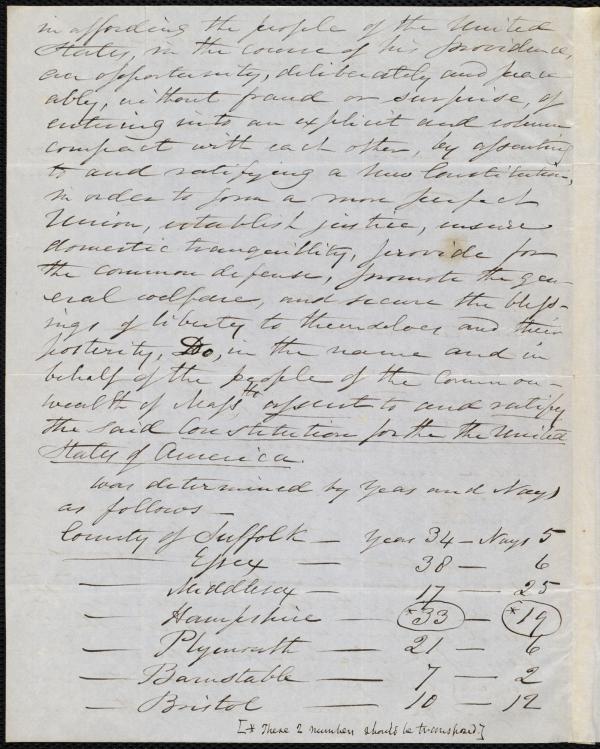 in affording the people of the United
States, in the course of his providence,
an opportunity, deliberately and peace
ably, without fraud or surprise, of
entering into an explicit and solemn
compact with each other, by assenting
to and ratifying a New Constitution,
in order to form a more perfect
Union, establish justice, insure
domestic tranquillity, provide for
the common defense, promote the gen-
eral welfare, and secure the bless-
ings of liberty to themselves and their
posterity, Do, in the name and in
behalf of the people of the Common-
wealth of Masstts assent to and ratify
the said Constitution for the the United
States of America.
was determined by Yeas and Nays
as follows —
County of Suffolk — Yeas 34 — Nays 5
— Essex — 38 — 6
— Middlesex — 17 — 25
— Hampshire — *33 — *19
— Plymouth — 21 — 6
— Barnstable — 7 — 2
— Bristol — 10 — 12
[* These 2 numbers should be transposed]